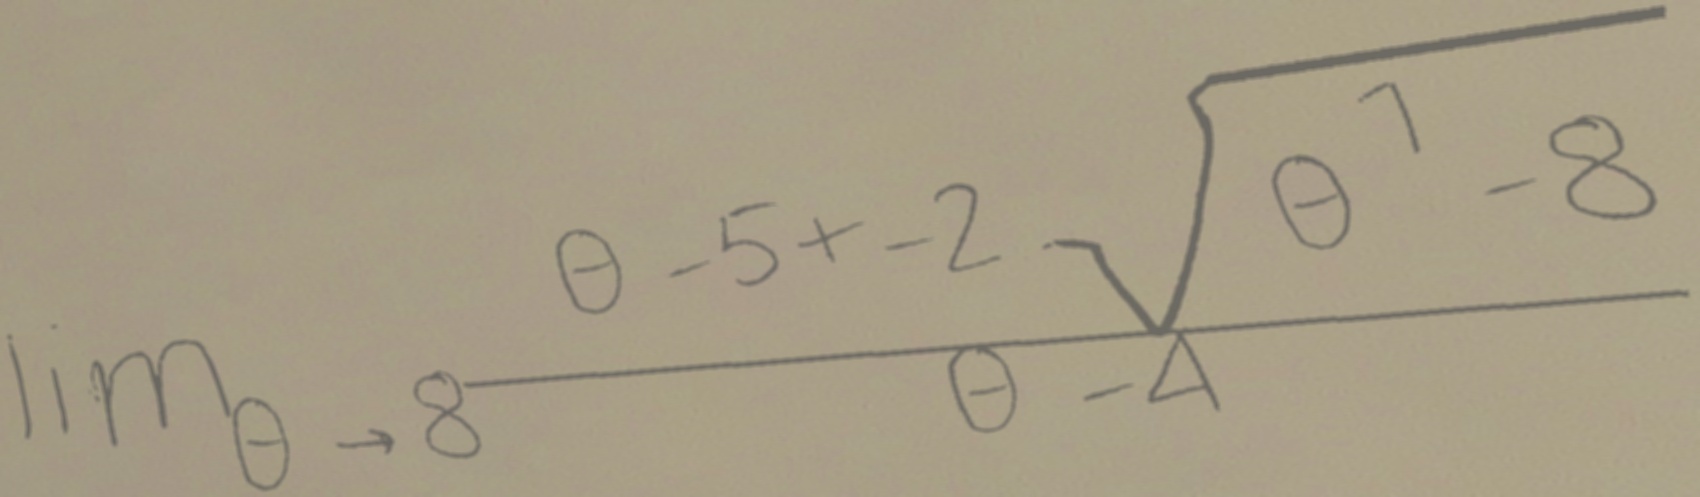 lim_{θ→8} \frac{θ-5+-2\sqrt{θ^1-8}}{θ-4}